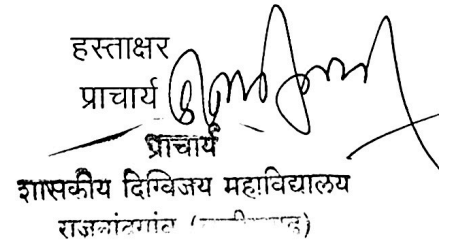 हस्ताक्षर
प्राचार्य
प्राचार्य
शासकीय दिग्विजय महाविद्यालय
राजनांदगांव